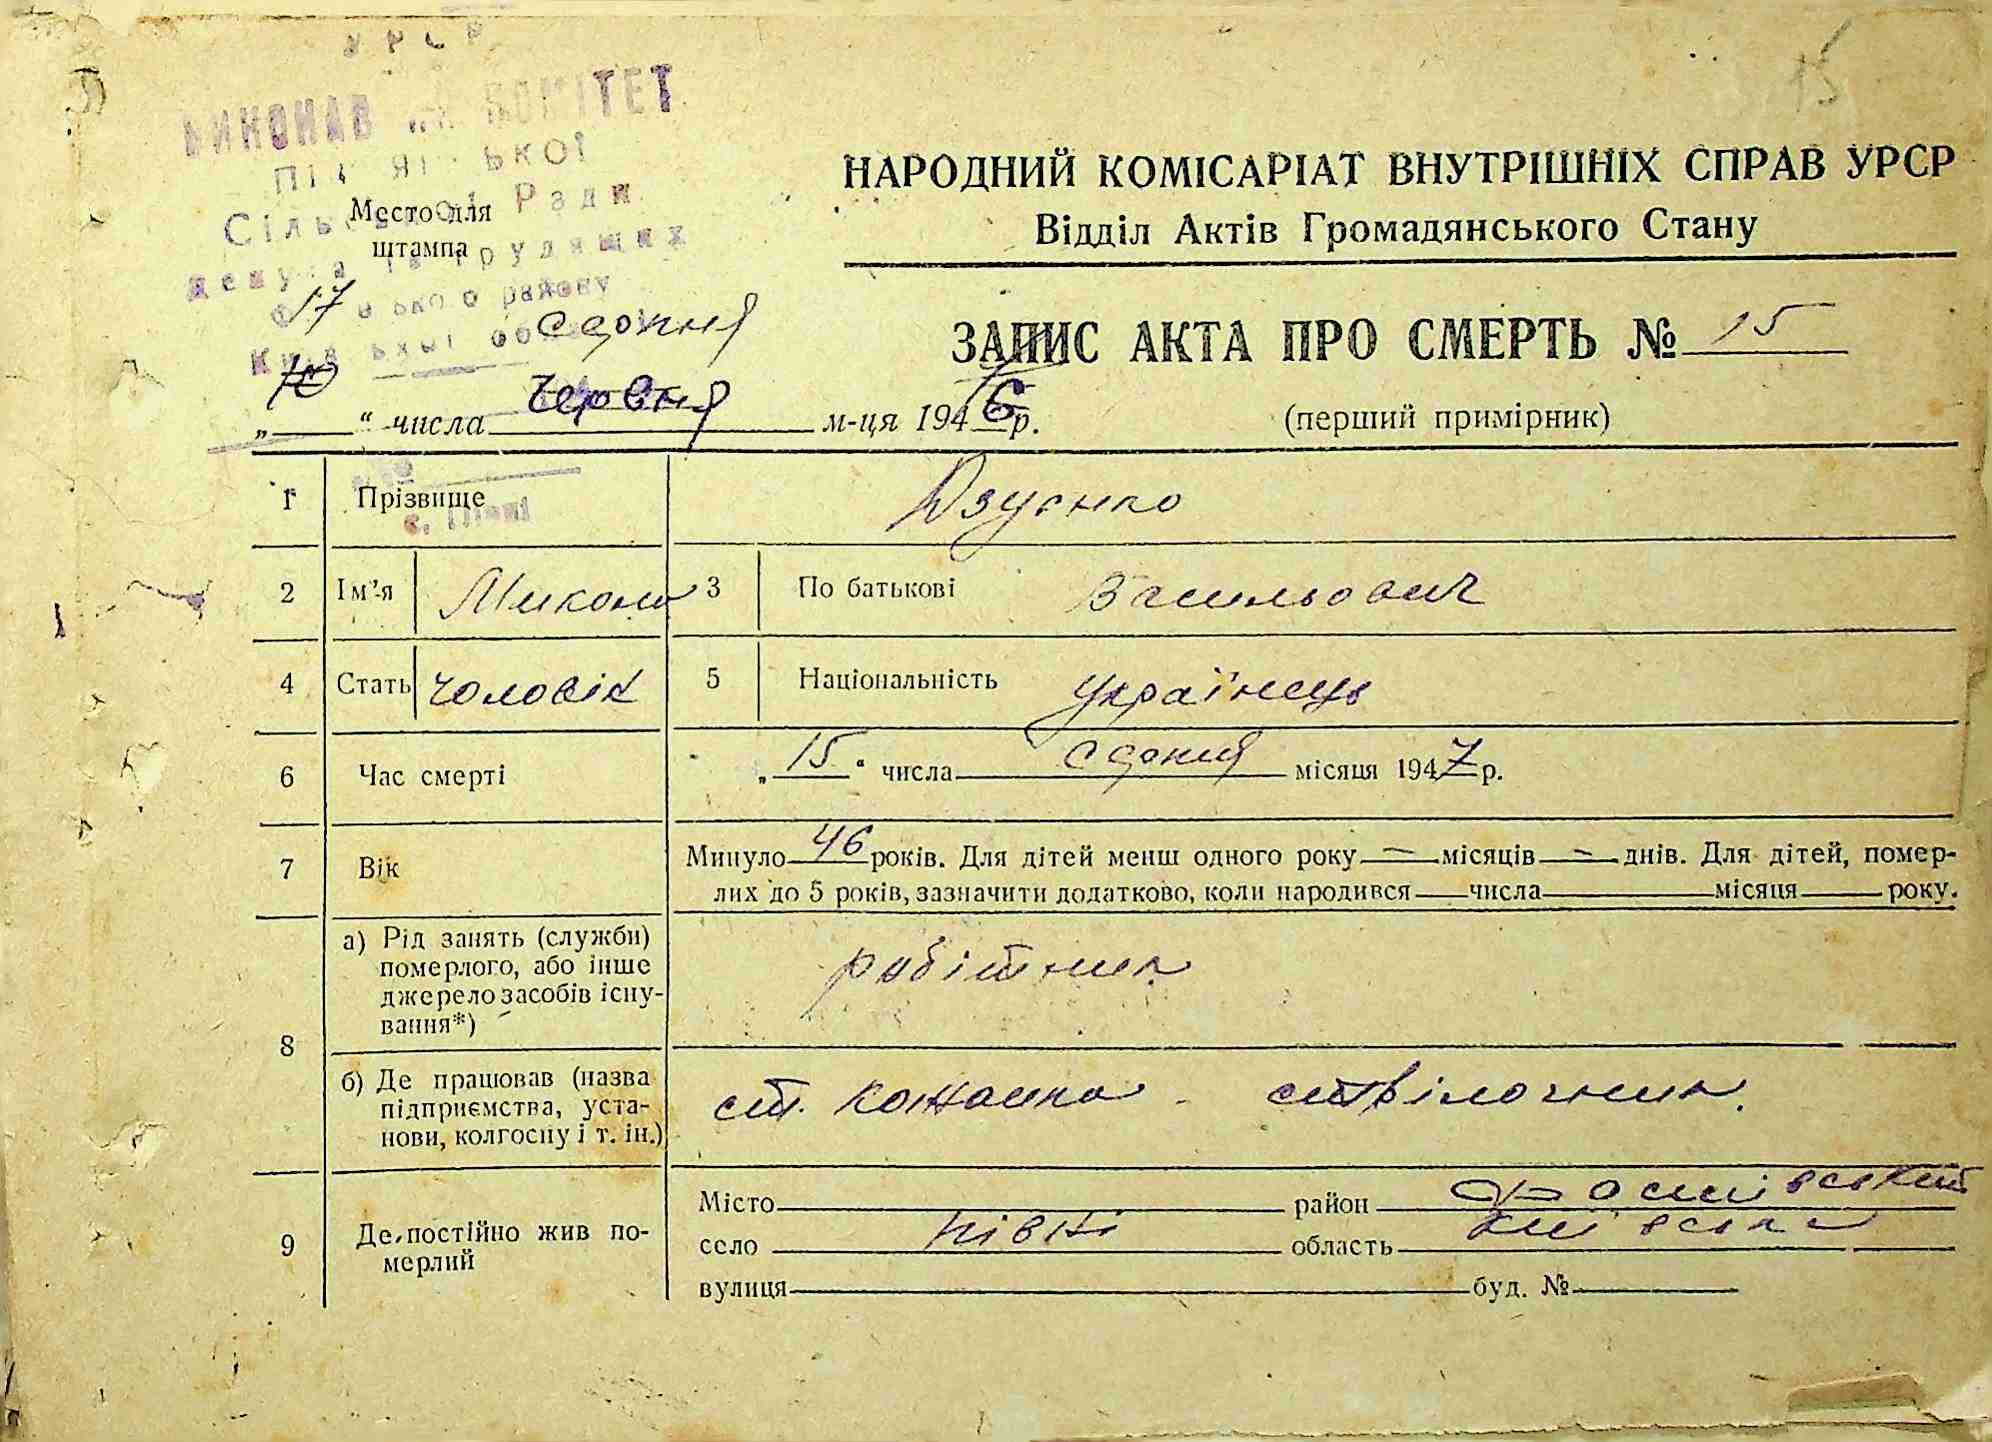 15
КОМІТЕТ
Сільської Ради
району
Место для
штампа
НАРОДНИЙ КОМІСАРІАТ ВНУТРІШНІХ СПРАВ УРСР
Відділ Актів Громадянського Стану
ЗАПИС АКТА ПРО СМЕРТЬ № 15
(перший примірник)
17 серпня
10 “ числа червня м-ця 1946 р.
1 Прізвище Дзусенко
с. Півні
2 Ім’я Микола 3 По батькові Васильович
4 Стать чоловік 5 Національність Українець
6 Час смерті „ 15 “ числа серпня місяця 1947 р.
7 Вік Минуло 46 років. Для дітей менш одного року — місяців — днів. Для дітей, помер-
лих до 5 років, зазначити додатково, коли народився числа місяця року.
8 а) Рід занять (служби)
померлого, або інше
джерело засобів існу-
вання*)
робітник
б) Де працював (назва
підприємства, уста-
нови, колгоспу і т. ін.)
ст. Кожанка - стрілочник.
9 Де постійно жив по-
мерлий
Місто район Фастівський
село Півні область Київська
вулиця буд. №